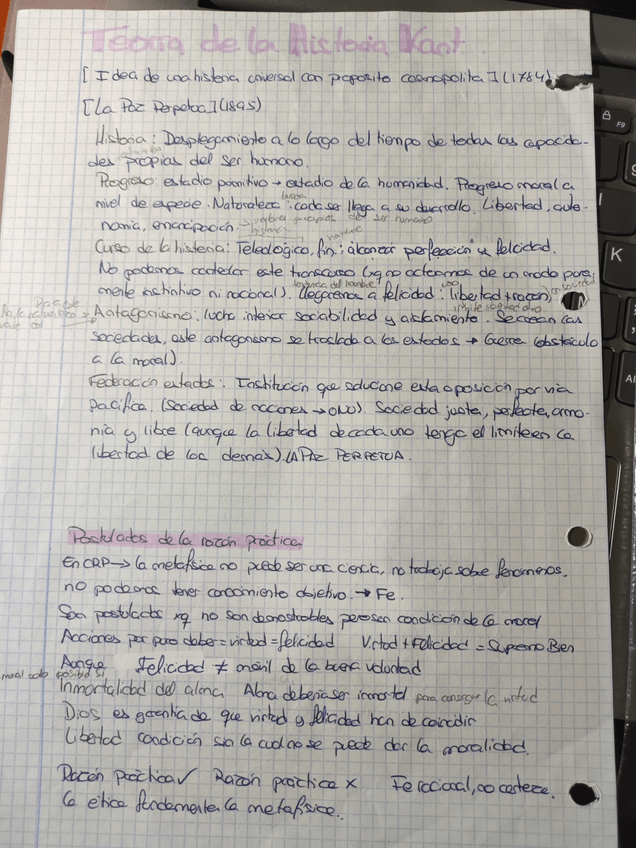 Teoría de la Historia Kant
[Idea de una historia universal con proposito cosmopolita] (1784)
[La Paz Perpetua] (1895)
Historia: Desplegamiento a lo largo del tiempo de todas las capacida-
des propias del ser humano.
Progreso: estadio primitivo → estadio de la humanidad. Progreso moral a
nivel de especie. Naturaleza: cada ser llega a su desarrollo. Libertad, auto-
nomía, emancipación
propias del ser humano
Curso de la historia: Teleológico, fin: alcanzar perfección y felicidad.
No podemos controlar este transcurso (xq no actuamos de un modo pura-
mente instintivo ni racional). Llegaremos a felicidad: libertad + razón
Antagonismo: lucha interior sociabilidad y aislamiento. Se crean las
sociedades, este antagonismo se traslada a los estados → Guerra (obstáculo
a la moral).
Federación estados: Institución que solucione esta oposición por vía
pacífica. (Sociedad de naciones → ONU). Sociedad justa, perfecta, armo-
nía y libre (aunque la libertad de cada uno tenga el límite en la
libertad de los demás). LA PAZ PERPETUA.
Postulados de la razón práctica
En CRP → la metafísica no puede ser una ciencia, no trabaja sobre fenómenos.
no podemos tener conocimiento objetivo. → Fe.
Son postulados xq no son demostrables pero son condición de la moral
Acciones por puro deber = virtud = felicidad Virtud + Felicidad = Supremo Bien
Aunque felicidad ≠ móvil de la buena voluntad
moral solo posible si
Inmortalidad del alma. Alma debería ser inmortal para conseguir la virtud
Dios es garantía de que virtud y felicidad han de coincidir
Libertad condición sin la cual no se puede dar la moralidad.
Razón práctica ✓ Razón práctica x Fe racional, no certeza.
La ética fundamenta la metafísica.